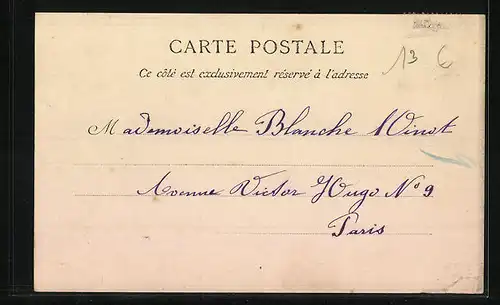 CARTE POSTALE
13
Ce côté est exclusivement réservé à l'adresse
Mademoiselle Blanche Vinot
Avenue Victor Hugo No 9
Paris